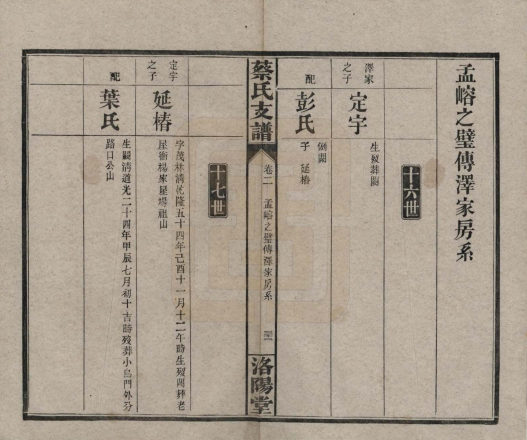 孟嵱之璧傳澤家房系
十六世
澤家之子
定宇
生歿葬闕
配
彭氏
俱闕
子 延椿
蔡氏支譜
卷二
孟嵱之璧傳澤家房系
洛陽堂
十七世
定宇之子
延椿
字茂林清乾隆五十四年己酉十一月十二午時生歿闕葬老
屋衝楊家屋場祖山
配
葉氏
生闕清道光二十四年甲辰七月初十吉時歿葬小烏門外分
路口公山